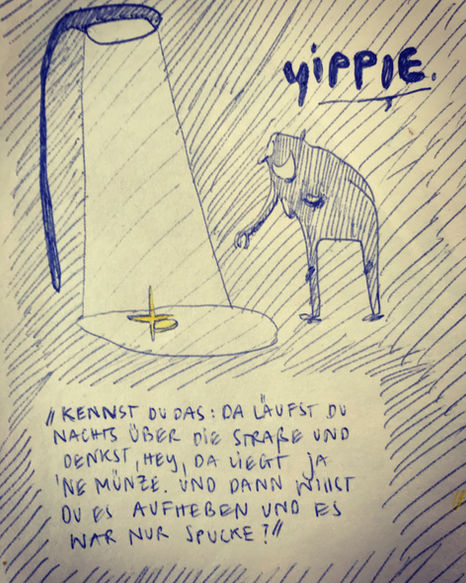 yiPPIE.
"KENNST DU DAS: DA LÄUFST DU
NACHTS ÜBER DIE STRAßE UND
DENKST, HEY, DA LIEGT JA
'NE MÜNZE. UND DANN WILLST
DU ES AUFHEBEN UND ES
WAR NUR SPUCKE?"